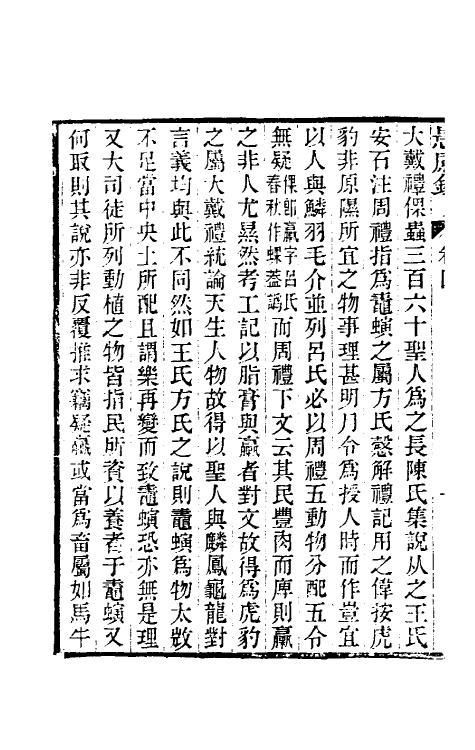 大戴禮倮蟲三百六十聖人爲之長陳氏集說从之王氏
安石注周禮指爲鼃螾之屬方氏慤解禮記用之偉按虎
豹非原隰所宜之物事理甚明月令爲授人時而作豈宜
以人與鱗羽毛介並列呂氏必以周禮五動物分配五令
無疑倮卽臝字呂氏春秋作螺蓋譌而周禮下文云其民豐肉而庳則臝
之非人尤㬎然考工記以脂膏與臝者對文故得爲虎豹
之屬大戴禮統論天生人物故得以聖人與麟鳳龜龍對
言義均與此不同然如王氏方氏之說則鼃螾爲物太㪚
不足當中央土所配且謂樂再變而致鼃螾恐亦無是理
又大司徒所列動植之物皆指民所資以養者于鼃螾又
何取則其說亦非反覆推求竊疑臝或當爲畜屬如馬牛